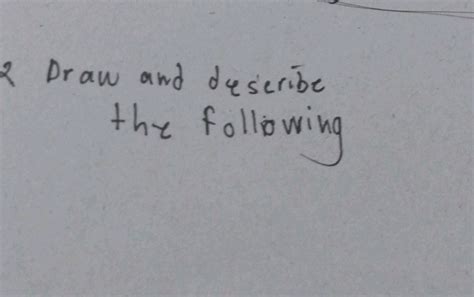 2 Draw and describe
the following